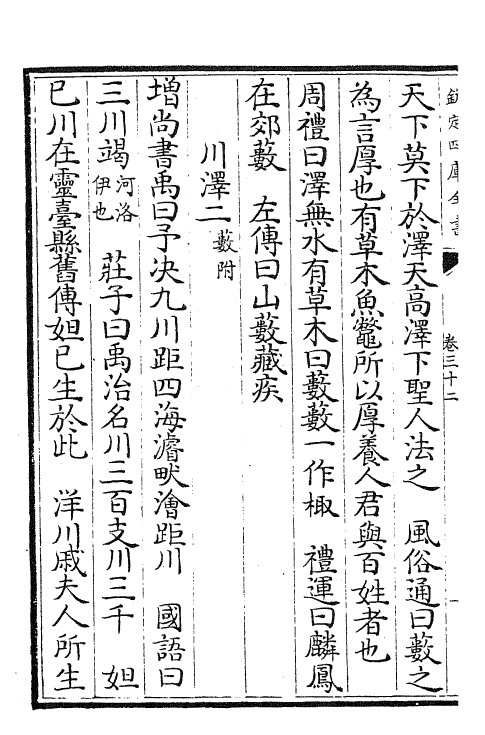 欽定四庫全書
卷三十二
天下莫下於澤天高澤下聖人法之　風俗通曰藪之
為言厚也有草木魚鼈所以厚養人君與百姓者也
周禮曰澤無水有草木曰藪藪一作棷　禮運曰麟鳳
在郊藪　左傳曰山藪藏疾
川澤二藪附
增尚書禹曰予决九川距四海濬畎澮距川　國語曰
三川竭河洛伊也　莊子曰禹治名川三百支川三千　妲
已川在靈臺縣舊傳妲已生於此　洋川戚夫人所生